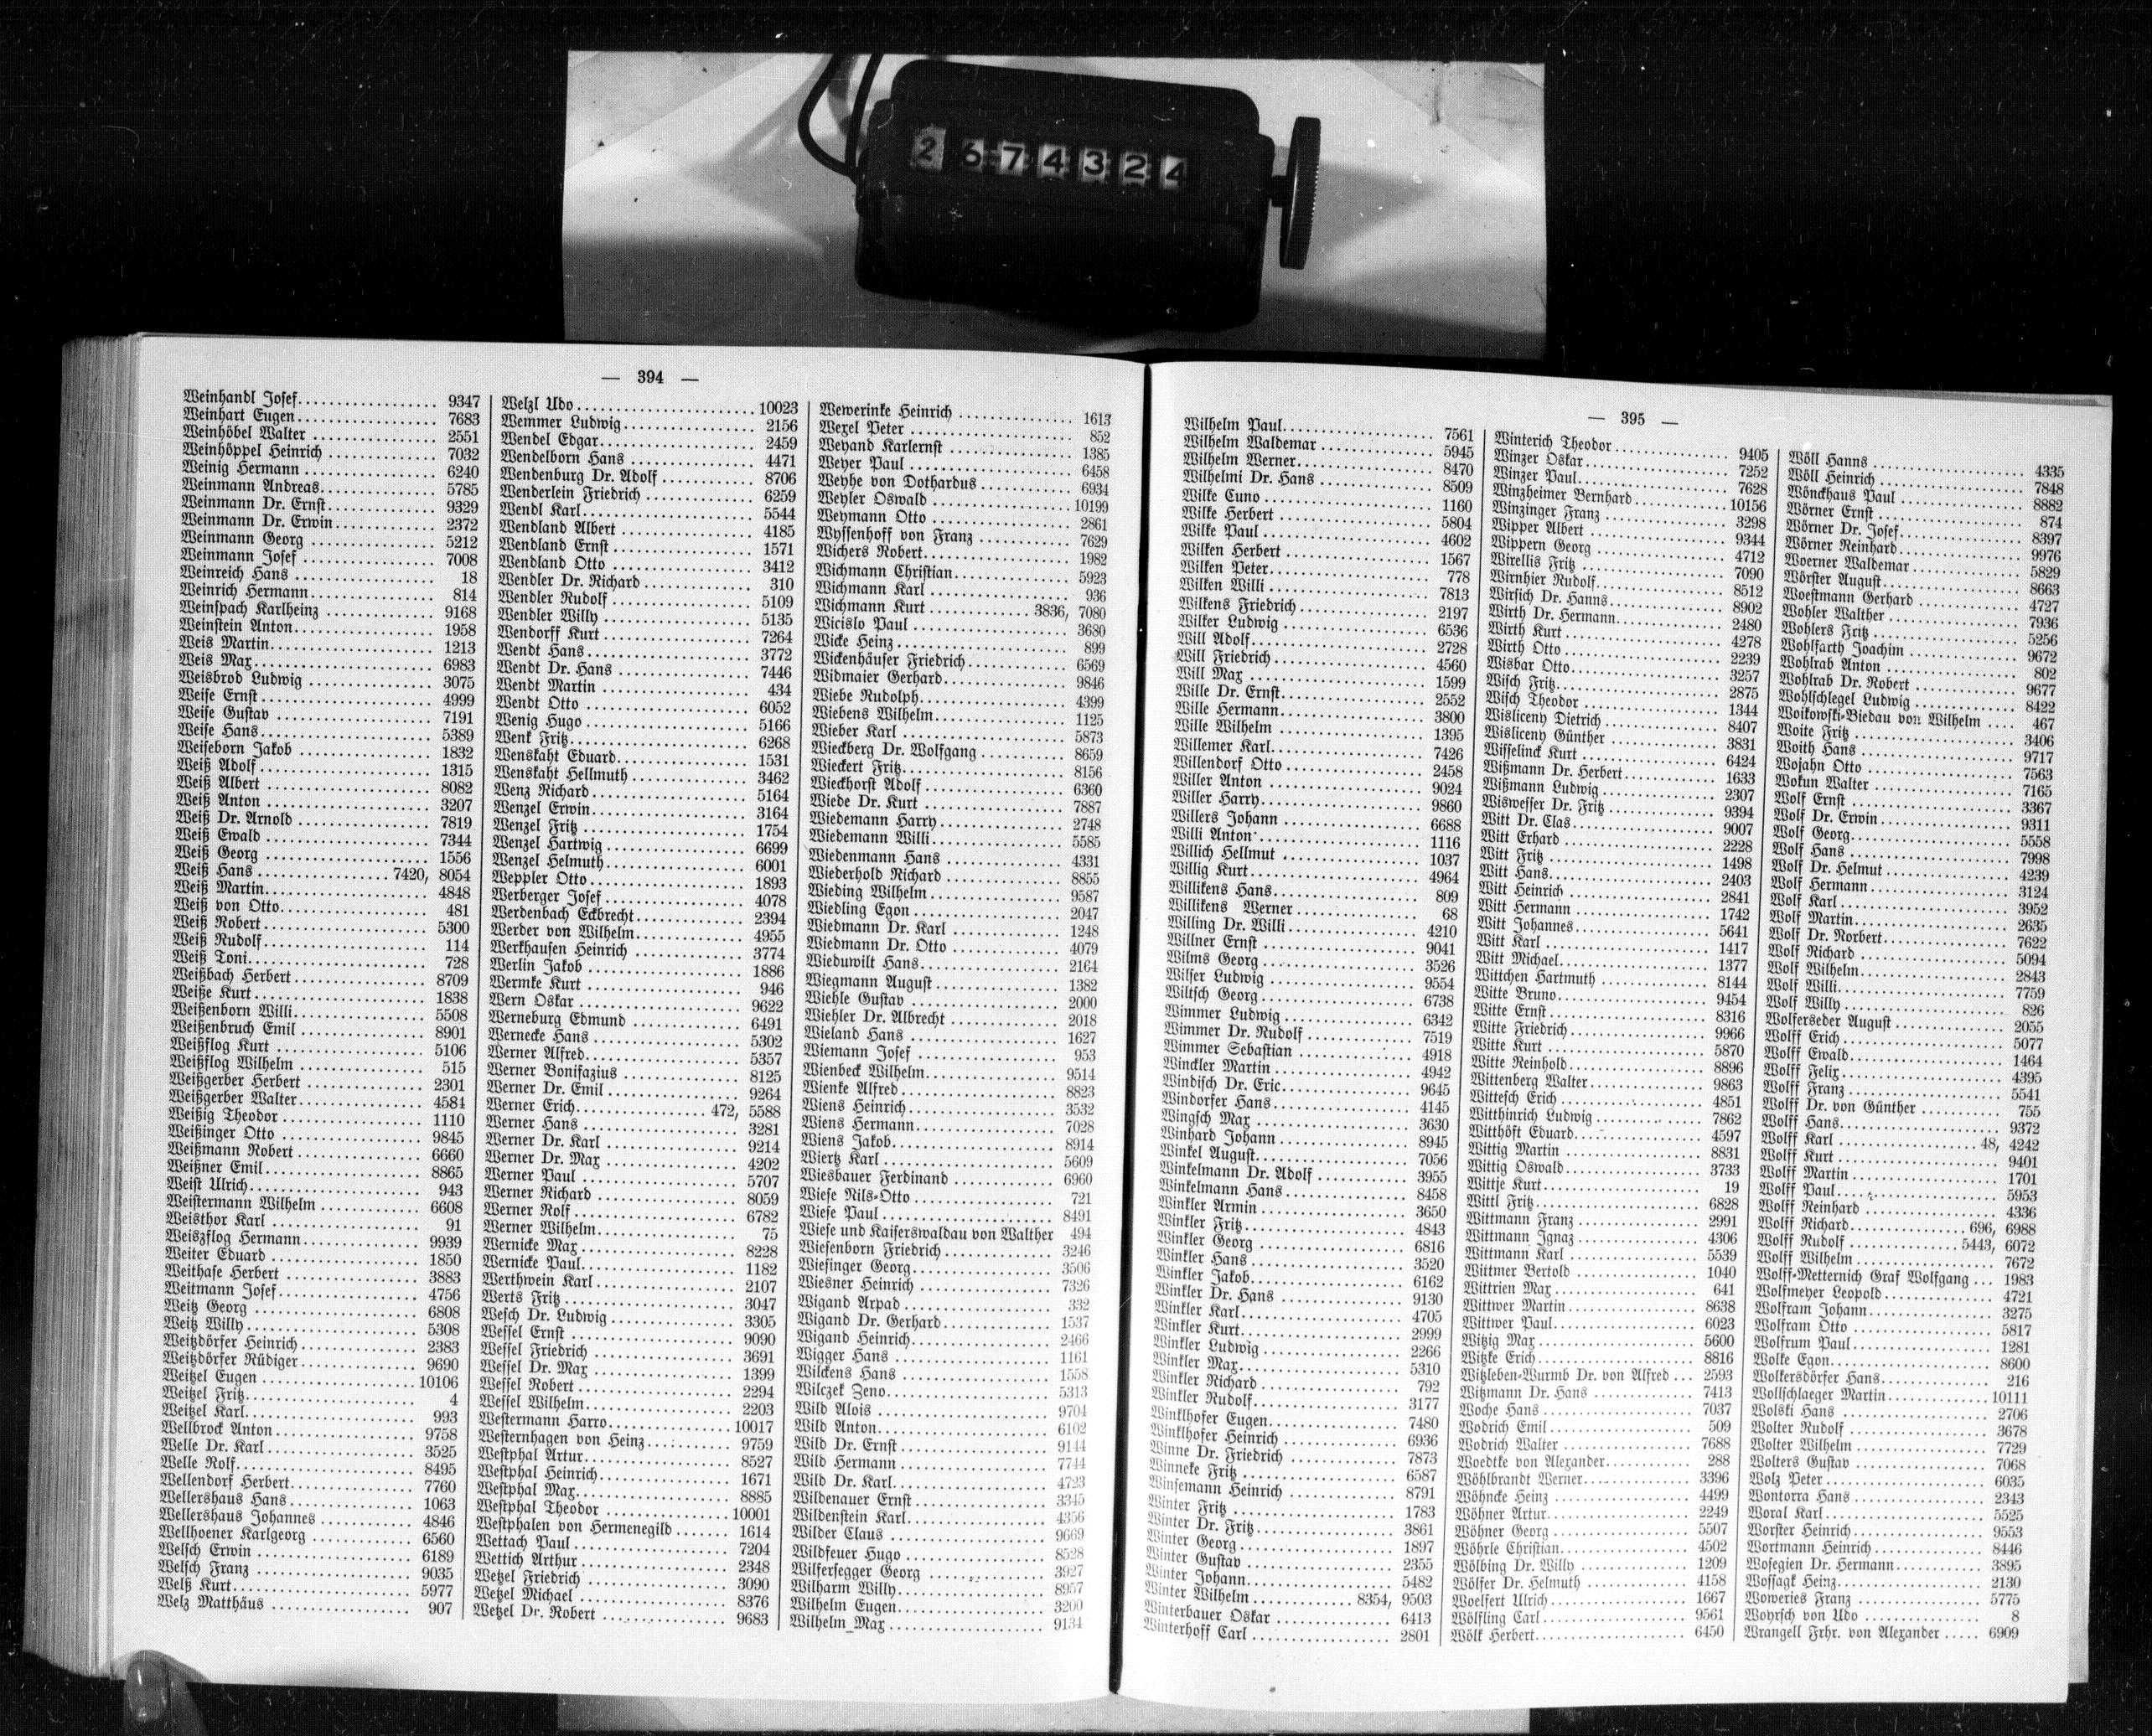 2 6 7 4 3 2 4
— 394 —
Weinhandl Josef .... 9347
Weinhart Eugen .... 7683
Weinhöbel Walter .... 2551
Weinhöppel Heinrich .... 7032
Weinig Hermann .... 6240
Weinmann Andreas .... 5785
Weinmann Dr. Ernst .... 9329
Weinmann Dr. Erwin .... 2372
Weinmann Georg .... 5212
Weinmann Josef .... 7008
Weinreich Hans .... 18
Weinrich Hermann .... 814
Weinspach Karlheinz .... 9168
Weinstein Anton .... 1958
Weis Martin .... 1213
Weis Max .... 6983
Weisbrod Ludwig .... 3075
Weise Ernst .... 4999
Weise Gustav .... 7191
Weise Hans .... 5389
Weiseborn Jakob .... 1832
Weiß Adolf .... 1315
Weiß Albert .... 8082
Weiß Anton .... 3207
Weiß Dr. Arnold .... 7819
Weiß Ewald .... 7344
Weiß Georg .... 1556
Weiß Hans .... 7420, 8054
Weiß Martin .... 4848
Weiß von Otto .... 481
Weiß Robert .... 5300
Weiß Rudolf .... 114
Weiß Toni .... 728
Weißbach Herbert .... 8709
Weiße Kurt .... 1838
Weißenborn Willi .... 5508
Weißenbruch Emil .... 8901
Weißflog Kurt .... 5106
Weißflog Wilhelm .... 515
Weißgerber Herbert .... 2301
Weißgerber Walter .... 4584
Weißig Theodor .... 1110
Weißinger Otto .... 9845
Weißmann Robert .... 6660
Weißner Emil .... 8865
Weist Ulrich .... 943
Weistermann Wilhelm .... 6608
Weisthor Karl .... 91
Weiszflog Hermann .... 9939
Weiter Eduard .... 1850
Weithase Herbert .... 3883
Weitmann Josef .... 4756
Weitz Georg .... 6808
Weitz Willy .... 5308
Weitzdörfer Heinrich .... 2383
Weitzdörfer Rüdiger .... 9690
Weitzel Eugen .... 10106
Weitzel Fritz .... 4
Weitzel Karl .... 993
Wellbrock Anton .... 9758
Welle Dr. Karl .... 3525
Welle Rolf .... 8495
Wellendorf Herbert .... 7760
Wellershaus Hans .... 1063
Wellershaus Johannes .... 4846
Wellhoener Karlgeorg .... 6560
Welsch Erwin .... 6189
Welsch Franz .... 9035
Welß Kurt .... 5977
Welz Matthäus .... 907
Welzl Udo .... 10023
Wemmer Ludwig .... 2156
Wendel Edgar .... 2459
Wendelborn Hans .... 4471
Wendenburg Dr. Adolf .... 8706
Wenderlein Friedrich .... 6259
Wendl Karl .... 5544
Wendland Albert .... 4185
Wendland Ernst .... 1571
Wendland Otto .... 3412
Wendler Dr. Richard .... 310
Wendler Rudolf .... 5109
Wendler Willy .... 5135
Wendorff Kurt .... 7264
Wendt Hans .... 3772
Wendt Dr. Hans .... 7446
Wendt Martin .... 434
Wendt Otto .... 6052
Wenig Hugo .... 5166
Wenk Fritz .... 6268
Wenskaht Eduard .... 1531
Wenskaht Hellmuth .... 3462
Wenz Richard .... 5164
Wenzel Erwin .... 3164
Wenzel Fritz .... 1754
Wenzel Hartwig .... 6699
Wenzel Helmuth .... 6001
Weppler Otto .... 1893
Werberger Josef .... 4078
Werdenbach Eckbrecht .... 2394
Werder von Wilhelm .... 4955
Werkhausen Heinrich .... 3774
Werlin Jakob .... 1886
Wermke Kurt .... 946
Wern Oskar .... 9622
Werneburg Edmund .... 6491
Wernecke Hans .... 5302
Werner Alfred .... 5357
Werner Bonifazius .... 8125
Werner Dr. Emil .... 9264
Werner Erich .... 472, 5588
Werner Hans .... 3281
Werner Dr. Karl .... 9214
Werner Dr. Max .... 4202
Werner Paul .... 5707
Werner Richard .... 8059
Werner Rolf .... 6782
Werner Wilhelm .... 75
Wernicke Max .... 8228
Wernicke Paul .... 1182
Werthwein Karl .... 2107
Werts Fritz .... 3047
Wesch Dr. Ludwig .... 3305
Wessel Ernst .... 9090
Wessel Friedrich .... 3691
Wessel Dr. Max .... 1399
Wessel Robert .... 2294
Wessel Wilhelm .... 2203
Westermann Harro .... 10017
Westernhagen von Heinz .... 9759
Westphal Artur .... 8527
Westphal Heinrich .... 1671
Westphal Max .... 8885
Westphal Theodor .... 10001
Westphalen von Hermenegild .... 1614
Wettach Paul .... 7204
Wettich Arthur .... 2348
Wetzel Friedrich .... 3090
Wetzel Michael .... 8376
Wetzel Dr. Robert .... 9683
Wewerinke Heinrich .... 1613
Wexel Peter .... 852
Weyand Karlernst .... 1385
Weyer Paul .... 6458
Weyhe von Dothardus .... 6934
Weyler Oswald .... 10199
Weymann Otto .... 2861
Wyssenhoff von Franz .... 7629
Wichers Robert .... 1982
Wichmann Christian .... 5923
Wichmann Karl .... 936
Wichmann Kurt .... 3836, 7080
Wicislo Paul .... 3680
Wicke Heinz .... 899
Wickenhäuser Friedrich .... 6569
Widmaier Gerhard .... 9846
Wiebe Rudolph .... 4399
Wiebens Wilhelm .... 1125
Wieber Karl .... 5873
Wieckberg Dr. Wolfgang .... 8659
Wieckert Fritz .... 8156
Wieckhorst Adolf .... 6360
Wiede Dr. Kurt .... 7887
Wiedemann Harry .... 2748
Wiedemann Willi .... 5585
Wiedenmann Hans .... 4331
Wiederhold Richard .... 8855
Wieding Wilhelm .... 9587
Wiedling Egon .... 2047
Wiedmann Dr. Karl .... 1248
Wiedmann Dr. Otto .... 4079
Wieduwilt Hans .... 2164
Wiegmann August .... 1382
Wiehle Gustav .... 2000
Wiehler Dr. Albrecht .... 2018
Wieland Hans .... 1627
Wiemann Josef .... 953
Wienbeck Wilhelm .... 9514
Wienke Alfred .... 8823
Wiens Heinrich .... 3532
Wiens Hermann .... 7028
Wiens Jakob .... 8914
Wiertz Karl .... 5609
Wiesbauer Ferdinand .... 6960
Wiese Nils-Otto .... 721
Wiese Paul .... 8491
Wiese und Kaiserswaldau von Walther 494
Wiesenborn Friedrich .... 3246
Wiesinger Georg .... 3506
Wiesner Heinrich .... 7326
Wigand Arpad .... 332
Wigand Dr. Gerhard .... 1537
Wigand Heinrich .... 2466
Wigger Hans .... 1161
Wilckens Hans .... 1558
Wilczek Zeno .... 5313
Wild Alois .... 9704
Wild Anton .... 6102
Wild Dr. Ernst .... 9144
Wild Hermann .... 7744
Wild Dr. Karl .... 4723
Wildenauer Ernst .... 3345
Wildenstein Karl .... 4356
Wilder Claus .... 9669
Wildfeuer Hugo .... 8528
Wilfersegger Georg .... 3927
Wilharm Willy .... 8957
Wilhelm Eugen .... 3200
Wilhelm Max .... 9134
— 395 —
Wilhelm Paul .... 7561
Wilhelm Waldemar .... 5945
Wilhelm Werner .... 8470
Wilhelmi Dr. Hans .... 8509
Wilke Cuno .... 1160
Wilke Herbert .... 5804
Wilke Paul .... 4602
Wilken Herbert .... 1567
Wilken Peter .... 778
Wilken Willi .... 7813
Wilkens Friedrich .... 2197
Wilker Ludwig .... 6536
Will Adolf .... 2728
Will Friedrich .... 4560
Will Max .... 1599
Wille Dr. Ernst .... 2552
Wille Hermann .... 3800
Wille Wilhelm .... 1395
Willemer Karl .... 7426
Willendorf Otto .... 2458
Willer Anton .... 9024
Willer Harry .... 9860
Willers Johann .... 6688
Willi Anton .... 1116
Willich Hellmut .... 1037
Willig Kurt .... 4964
Willikens Hans .... 809
Willikens Werner .... 68
Willing Dr. Willi .... 4210
Willner Ernst .... 9041
Wilms Georg .... 3526
Wilser Ludwig .... 9554
Wiltsch Georg .... 6738
Wimmer Ludwig .... 6342
Wimmer Dr. Rudolf .... 7519
Wimmer Sebastian .... 4918
Winckler Martin .... 4942
Windisch Dr. Eric .... 9645
Windorfer Hans .... 4145
Wingsch Max .... 3630
Winhard Johann .... 8945
Winkel August .... 7056
Winkelmann Dr. Adolf .... 3955
Winkelmann Hans .... 8458
Winkler Armin .... 3650
Winkler Fritz .... 4843
Winkler Georg .... 6816
Winkler Hans .... 3520
Winkler Jakob .... 6162
Winkler Dr. Hans .... 9130
Winkler Karl .... 4705
Winkler Kurt .... 2999
Winkler Ludwig .... 2266
Winkler Max .... 5310
Winkler Richard .... 792
Winkler Rudolf .... 3177
Winklhofer Eugen .... 7480
Winklhofer Heinrich .... 6936
Winne Dr. Friedrich .... 7873
Winneke Fritz .... 6587
Winsemann Heinrich .... 8791
Winter Fritz .... 1783
Winter Dr. Fritz .... 3861
Winter Georg .... 1897
Winter Gustav .... 2355
Winter Johann .... 5482
Winter Wilhelm .... 8354, 9503
Winterbauer Oskar .... 6413
Winterhoff Carl .... 2801
Winterich Theodor .... 9405
Winzer Oskar .... 7252
Winzer Paul .... 7628
Winzheimer Bernhard .... 10156
Winzinger Franz .... 3298
Wipper Albert .... 9344
Wippern Georg .... 4712
Wirellis Fritz .... 7090
Wirnhier Rudolf .... 8512
Wirsich Dr. Hanns .... 8902
Wirth Dr. Hermann .... 2480
Wirth Kurt .... 4278
Wirth Otto .... 2239
Wisbar Otto .... 3257
Wisch Fritz .... 2875
Wisch Theodor .... 1344
Wisliceny Dietrich .... 8407
Wisliceny Günther .... 3831
Wisselinck Kurt .... 6424
Wißmann Dr. Herbert .... 1633
Wißmann Ludwig .... 2307
Wiswesser Dr. Fritz .... 9394
Witt Dr. Clas .... 9007
Witt Erhard .... 2228
Witt Fritz .... 1498
Witt Hans .... 2403
Witt Heinrich .... 2841
Witt Hermann .... 1742
Witt Johannes .... 5641
Witt Karl .... 1417
Witt Michael .... 1377
Wittchen Hartmuth .... 8144
Witte Bruno .... 9454
Witte Ernst .... 8316
Witte Friedrich .... 9966
Witte Kurt .... 5870
Witte Reinhold .... 8896
Wittenberg Walter .... 9863
Wittesch Erich .... 4851
Witthinrich Ludwig .... 7862
Witthöft Eduard .... 4597
Wittig Martin .... 8831
Wittig Oswald .... 3733
Wittje Kurt .... 19
Wittl Fritz .... 6828
Wittmann Franz .... 2991
Wittmann Ignaz .... 4306
Wittmann Karl .... 5539
Wittmer Bertold .... 1040
Wittrien Max .... 641
Wittwer Martin .... 8638
Wittwer Paul .... 6023
Witzig Max .... 5600
Witzke Erich .... 8816
Witzleben-Wurmb Dr. von Alfred ... 2593
Witzmann Dr. Hans .... 7413
Woche Hans .... 7037
Wodrich Emil .... 509
Wodrich Walter .... 7688
Woedtke von Alexander .... 288
Wöhlbrandt Werner .... 3396
Wöhncke Heinz .... 4499
Wöhner Artur .... 2249
Wöhner Georg .... 5507
Wöhrle Christian .... 4502
Wölbing Dr. Willy .... 1209
Wölfer Dr. Helmuth .... 4158
Woelfert Ulrich .... 1667
Wölfling Carl .... 9561
Wölk Herbert .... 6450
Wöll Hanns .... 4335
Wöll Heinrich .... 7848
Wönckhaus Paul .... 8882
Wörner Ernst .... 874
Wörner Dr. Josef .... 8397
Wörner Reinhard .... 9976
Woerner Waldemar .... 5829
Wörster August .... 8663
Woestmann Gerhard .... 4727
Wohler Walther .... 7936
Wohlers Fritz .... 5256
Wohlfarth Joachim .... 9672
Wohlrab Anton .... 802
Wohlrab Dr. Robert .... 9677
Wohlschlegel Ludwig .... 8422
Woikowski-Biedau von Wilhelm .... 467
Woite Fritz .... 3406
Woith Hans .... 9717
Wojahn Otto .... 7563
Wokun Walter .... 7165
Wolf Ernst .... 3367
Wolf Dr. Erwin .... 9311
Wolf Georg .... 5558
Wolf Hans .... 7998
Wolf Dr. Helmut .... 4239
Wolf Hermann .... 3124
Wolf Karl .... 3952
Wolf Martin .... 2635
Wolf Dr. Norbert .... 7622
Wolf Richard .... 5094
Wolf Wilhelm .... 2843
Wolf Willi .... 7759
Wolf Willy .... 826
Wolferseder August .... 2055
Wolff Erich .... 5077
Wolff Ewald .... 1464
Wolff Felix .... 4395
Wolff Franz .... 5541
Wolff Dr. von Günther .... 755
Wolff Hans .... 9372
Wolff Karl .... 48, 4242
Wolff Kurt .... 9401
Wolff Martin .... 1701
Wolff Paul .... 5953
Wolff Reinhard .... 4336
Wolff Richard .... 696, 6988
Wolff Rudolf .... 5443, 6072
Wolff Wilhelm .... 7672
Wolff-Metternich Graf Wolfgang ... 1983
Wolfmeyer Leopold .... 4721
Wolfram Johann .... 3275
Wolfram Otto .... 5817
Wolfrum Paul .... 1281
Wolke Egon .... 8600
Wolkersdörfer Hans .... 216
Wollschlaeger Martin .... 10111
Wolski Hans .... 2706
Wolter Rudolf .... 3678
Wolter Wilhelm .... 7729
Wolters Gustav .... 7068
Wolz Peter .... 6035
Wontorra Hans .... 2343
Woral Karl .... 5525
Worster Heinrich .... 9553
Wortmann Heinrich .... 8446
Wosegien Dr. Hermann .... 3895
Wossagk Heinz .... 2130
Woweries Franz .... 5775
Woyrsch von Udo .... 8
Wrangell Frhr. von Alexander ..... 6909